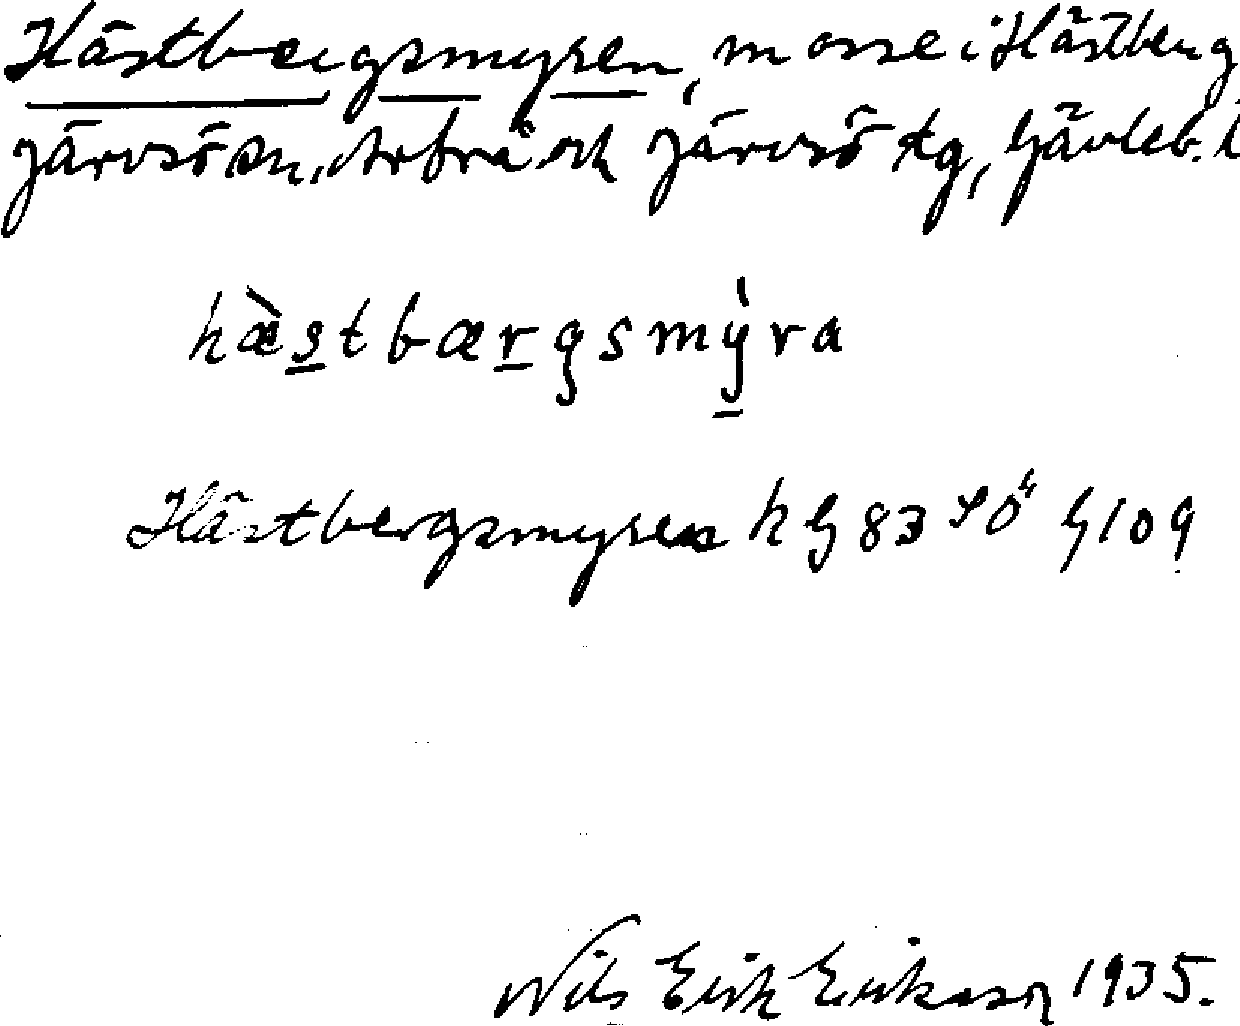 Hästbergsmyren, mosse i Hästberg
Järvsö sn, Arbrå och Järvsö tg, Gävleb. l
hæ̀stbærgsmỳra
Hästbergsmyren h G 83 SÖ4 G 109
Nils Erik Eriksson 1935.